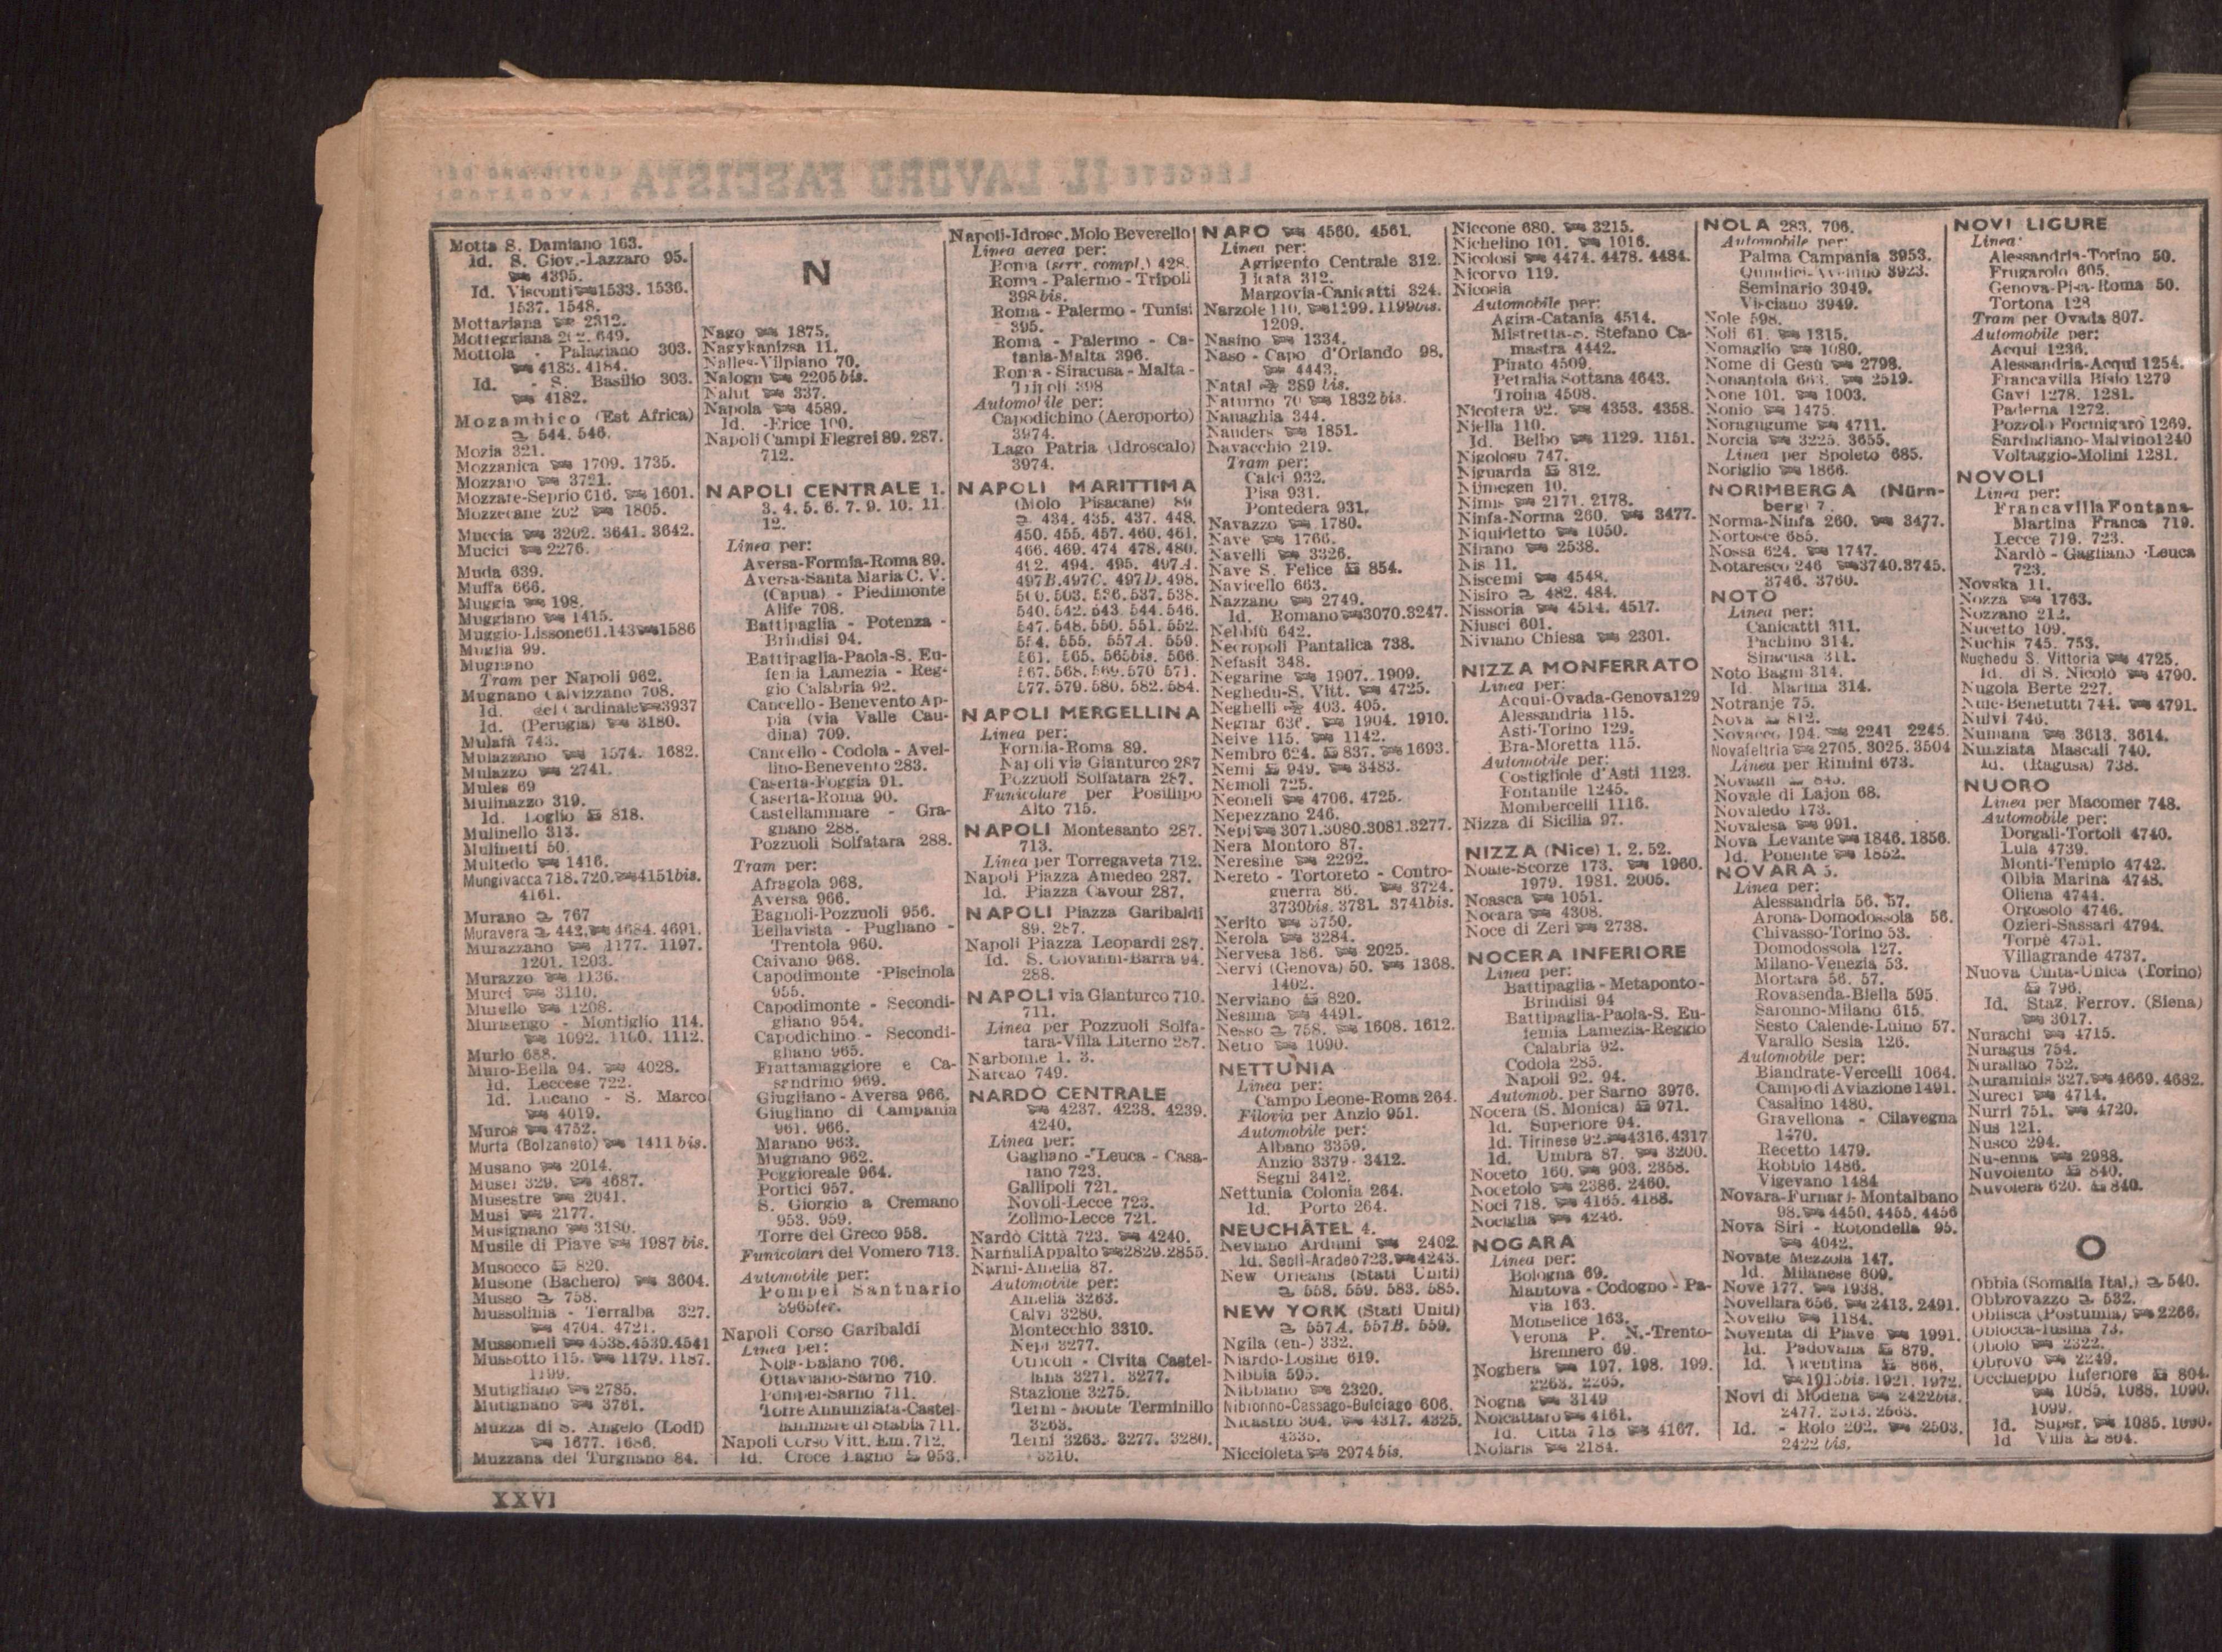 Motta S. Damiano 163.
Id. S. Giov.-Lazzaro 95.
4395.
Id. Visconti 1533. 1536.
1537. 1548.
Mottaziana 2312.
Motteggiana 202. 649.
Mottola - Palagiano 303.
4183. 4184.
Id. - S. Basilio 303.
4182.
Mozambico (Est Africa)
544. 546.
Mozia 321.
Mozzanica 1709. 1735.
Mozzano 3721.
Mozzate-Seprio 616. 1601.
Mozzecane 202 1805.
Muccia 3202. 3641. 3642.
Mucici 2276.
Muda 639.
Muffa 666.
Muggia 198.
Muggiano 1415.
Muggio-Lissone 61.143 1586
Muglia 99.
Mugnano
Tram per Napoli 962.
Mugnano Calvizzano 708.
Id. del Cardinale 3937
Id. (Perugia) 3180.
Mulafà 743.
Mulazzano 1574. 1682.
Mulazzo 2741.
Mules 69
Mulinazzo 319.
Id. Loglio 818.
Mulinello 313.
Mulinetti 50.
Multedo 1416.
Mungivacca 718. 720. 4151bis.
4161.
Murano 767
Muravera 442. 4684. 4691.
Murazzano 1177. 1197.
1201. 1203.
Murazzo 1136.
Murci 3110.
Murello 1208.
Murisengo - Montiglio 114.
1092. 1100. 1112.
Murlo 688.
Muro-Bella 94. 4028.
Id. Leccese 722.
Id. Lucano - S. Marco
4019.
Muros 4752.
Murta (Bolzaneto) 1411 bis.
Musano 2014.
Musei 329. 4687.
Musestre 2041.
Musi 2177.
Musignano 3180.
Musile di Piave 1987 bis.
Musocco 820.
Musone (Bachero) 3604.
Musso 758.
Mussolinia - Terralba 327.
4704. 4721.
Mussomeli 4538.4539.4541
Mussotto 115. 1179. 1187.
1199.
Mutigliano 2785.
Mutignano 3761.
Muzza di S. Angelo (Lodi)
1677. 1686.
Muzzana del Turgnano 84.
N
Nago 1875.
Nagykanizsa 11.
Nalles-Vilpiano 70.
Nalogu 2205bis.
Nalut 337.
Napola 4589.
Id. -Erice 100.
Napoli Campi Flegrei 89. 287.
712.
NAPOLI CENTRALE 1.
3. 4. 5. 6. 7. 9. 10. 11.
12.
Linea per:
Aversa-Formia-Roma 89.
Aversa-Santa Maria C. V.
(Capua) - Piedimonte
Alife 708.
Battipaglia - Potenza -
Brindisi 94.
Battipaglia-Paola-S. Eu-
femia Lamezia - Reg-
gio Calabria 92.
Cancello - Benevento Ap-
pia (via Valle Cau-
dina) 709.
Cancello - Codola - Avel-
lino-Benevento 283.
Caserta-Foggia 91.
Caserta-Roma 90.
Castellammare - Gra-
gnano 288.
Pozzuoli Solfatara 288.
Tram per:
Afragola 968.
Aversa 966.
Bagnoli-Pozzuoli 956.
Bellavista - Pugliano -
Trentola 960.
Caivano 968.
Capodimonte -Piscinola
955.
Capodimonte - Secondi-
gliano 954.
Capodichino - Secondi-
gliano 965.
Frattamaggiore e Ca-
sandrino 969.
Giugliano - Aversa 966.
Giugliano di Campania
961. 966.
Marano 963.
Mugnano 962.
Poggioreale 964.
Portici 957.
S. Giorgio a Cremano
953. 959.
Torre del Greco 958.
Funicolari del Vomero 713.
Automobile per:
Pompei Santuario
3965ter.
Napoli Corso Garibaldi
Linea per:
Nola-Baiano 706.
Ottaviano-Sarno 710.
Pompei-Sarno 711.
Torre Annunziata-Castel-
lammare di Stabia 711.
Napoli Corso Vitt. Em. 712.
Id. Croce Lagno 953.
Napoli-Idrosc. Molo Beverello
Linea aerea per:
Roma (serv. compl.) 428.
Roma - Palermo - Tripoli
398bis.
Roma - Palermo - Tunisi
395.
Roma - Palermo - Ca-
tania-Malta 396.
Roma - Siracusa - Malta -
Tripoli 398
Automobile per:
Capodichino (Aeroporto)
3974.
Lago Patria (Idroscalo)
3974.
NAPOLI MARITTIMA
(Molo Pisacane) 89
434. 435. 437. 448.
450. 455. 457. 460. 461.
466. 469. 474. 478. 480.
492. 494. 495. 497A.
497B. 497C. 497D. 498.
500. 503. 536. 537. 538.
540. 542. 543. 544. 546.
547. 548. 550. 551. 552.
554. 555. 557A. 559.
561. 565. 565bis. 566.
567. 568. 569. 570 571.
577. 579. 580. 582. 584.
NAPOLI MERGELLINA
Linea per:
Formia-Roma 89.
Napoli via Gianturco 287
Pozzuoli Solfatara 287.
Funicolare per Posillipo
Alto 715.
NAPOLI Montesanto 287.
713.
Linea per Torregaveta 712.
Napoli Piazza Amedeo 287.
Id. Piazza Cavour 287.
NAPOLI Piazza Garibaldi
89. 287.
Napoli Piazza Leopardi 287.
Id. S. Giovanni-Barra 94.
288.
NAPOLI via Gianturco 710.
711.
Linea per Pozzuoli Solfa-
tara-Villa Literno 287.
Narbonne 1. 3.
Narcao 749.
NARDÒ CENTRALE
4237. 4238. 4239.
4240.
Linea per:
Gagliano - Leuca - Casa-
rano 723.
Gallipoli 721.
Novoli-Lecce 723.
Zollino-Lecce 721.
Nardò Città 723. 4240.
Narnali Appalto 2829.2855.
Narni-Amelia 87.
Automobile per:
Amelia 3263.
Calvi 3280.
Montecchio 3310.
Nepi 3277.
Otricoli - Civita Castel-
lana 3271. 3277.
Stazione 3275.
Terni - Monte Terminillo
3263.
Terni 3263. 3277. 3280.
3310.
NARO 4560. 4561.
Linea per:
Agrigento Centrale 312.
Licata 312.
Margovia-Canicatti 324.
Narzole 110. 1199. 1199bis.
1209.
Nasino 1334.
Naso - Capo d'Orlando 98.
4443.
Natal 389 bis.
Naturno 70 1832bis.
Nauaghia 344.
Nauders 1851.
Navacchio 219.
Tram per:
Calci 932.
Pisa 931.
Pontedera 931.
Navazzo 1780.
Nave 1766.
Navelli 3326.
Nave S. Felice 854.
Navicello 663.
Nazzano 2749.
Id. Romano 3070.3247.
Nebbiù 642.
Necropoli Pantalica 738.
Nefasit 348.
Negarine 1907. 1909.
Neghedu-S. Vitt. 4725.
Neghelli 403. 405.
Negrar 636. 1904. 1910.
Neive 115. 1142.
Nembro 624. 837. 1693.
Nemi 949. 3483.
Nemoli 725.
Neoneli 4706. 4725.
Nepezzano 246.
Nepi 3071.3080.3081.3277.
Nera Montoro 87.
Neresine 2292.
Nereto - Tortoreto - Contro-
guerra 86. 3724.
3730bis. 3731. 3741bis.
Nerito 3750.
Nerola 3284.
Nervesa 186. 2025.
Nervi (Genova) 50. 1368.
1402.
Nerviano 820.
Nesima 4491.
Nesso 758. 1608. 1612.
Netro 1090.
NETTUNIA
Linea per:
Campo Leone-Roma 264.
Filovia per Anzio 951.
Automobile per:
Albano 3359.
Anzio 3379. 3412.
Segni 3412.
Nettunia Colonia 264.
Id. Porto 264.
NEUCHÂTEL 4.
Neviano Arduini 2402.
Id. Secli-Aradeo 723. 4243.
New Orleans (Stati Uniti)
558. 559. 583. 585.
NEW YORK (Stati Uniti)
557A. 557B. 559.
Ngila (en-) 332.
Niardo-Losine 619.
Nibbia 595.
Nibbiano 2320.
Nibionno-Cassago-Bulciago 606.
Nicastro 304. 4317. 4325.
4335.
Niccioleta 2974bis.
Niccone 680. 3215.
Nichelino 101. 1016.
Nicolosi 4474. 4478. 4484.
Nicorvo 119.
Nicosia
Automobile per:
Agira-Catania 4514.
Mistretta-S. Stefano Ca-
mastra 4442.
Pirato 4509.
Petralia Sottana 4643.
Troina 4508.
Nicotera 92. 4353. 4358.
Niella 110.
Id. Belbo 1129. 1151.
Nigolosu 747.
Niguarda 812.
Nijmegen 10.
Nimis 2171. 2178.
Ninfa-Norma 260. 3477.
Niquidetto 1050.
Nirano 2538.
Nis 11.
Niscemi 4548.
Nisiro 482. 484.
Nissoria 4514. 4517.
Niusci 601.
Niviano Chiesa 2301.
NIZZA MONFERRATO
Linea per:
Acqui-Ovada-Genova129
Alessandria 115.
Asti-Torino 129.
Bra-Moretta 115.
Automobile per:
Costigliole d'Asti 1123.
Fontanile 1245.
Mombercelli 1116.
Nizza di Sicilia 97.
NIZZA (Nice) 1. 2. 52.
Noale-Scorzè 173. 1960.
1979. 1981. 2005.
Noasca 1051.
Nocara 4308.
Noce di Zeri 2738.
NOCERA INFERIORE
Linea per:
Battipaglia - Metaponto-
Brindisi 94
Battipaglia-Paola-S. Eu-
femia Lamezia-Reggio
Calabria 92.
Codola 285.
Napoli 92. 94.
Automob. per Sarno 3976.
Nocera (S. Monica) 971.
Id. Superiore 94.
Id. Tirinese 92. 4316.4317
Id. Umbra 87. 3200.
Noceto 160. 903. 2358.
Nocetolo 2386. 2460.
Noci 718. 4165. 4188.
Nociglia 4246.
NOGARA
Linea per:
Bologna 69.
Mantova - Codogno - Pa-
via 163.
Monselice 163.
Verona P. N.-Trento-
Brennero 69.
Noghera 197. 198. 199.
2263. 2265.
Nogna 3149
Noicattaro 4161.
Id. Città 718 4167.
Nojaris 2184.
NOLA 283. 706.
Automobile per:
Palma Campania 3953.
Quindici-Avellino 3923.
Seminario 3949.
Visciano 3949.
Nole 598.
Noli 61. 1315.
Nomaglio 1080.
Nome di Gesù 2798.
Nonantola 663. 2519.
None 101. 1003.
Nonio 1475.
Noragugume 4711.
Norcia 3225. 3655.
Linea per Spoleto 685.
Noriglio 1866.
NORIMBERGA (Nürn-
berg) 7.
Norma-Ninfa 260. 3477.
Nortosce 685.
Nossa 624. 1747.
Notaresco 246 3740.3745.
3746. 3760.
NOTO
Linea per:
Canicatti 311.
Pachino 314.
Siracusa 311.
Noto Bagni 314.
Id. Marina 314.
Notranje 75.
Nova 812.
Novacco 194. 2241 2245.
Novafeltria 2705. 3025. 3504
Linea per Rimini 673.
Novagli 845.
Novale di Lajon 68.
Novaledo 173.
Novalesa 991.
Nova Levante 1846. 1856.
Id. Ponente 1852.
NOVARA 5.
Linea per:
Alessandria 56. 57.
Arona-Domodossola 56.
Chivasso-Torino 53.
Domodossola 127.
Milano-Venezia 53.
Mortara 56. 57.
Rovasenda-Biella 595.
Saronno-Milano 615.
Sesto Calende-Luino 57.
Varallo Sesia 126.
Automobile per:
Biandrate-Vercelli 1064.
Campo di Aviazione 1491.
Casalino 1480.
Gravellona - Cilavegna
1470.
Recetto 1479.
Robbio 1486.
Vigevano 1484
Novara-Furnari- Montalbano
98. 4450. 4455. 4456
Nova Siri - Rotondella 95.
4042.
Novate Mezzola 147.
Id. Milanese 609.
Nove 177. 1938.
Novellara 656. 2413. 2491.
Novello 1184.
Noventa di Piave 1991.
Id. Padovana 879.
Id. Vicentina 866.
1915bis. 1921. 1972.
Novi di Modena 2422bis.
2477. 2513. 2563.
Id. - Rolo 202. 2503.
2422 bis.
NOVI LIGURE
Linea:
Alessandria-Torino 50.
Frugarolo 605.
Genova-Pisa-Roma 50.
Tortona 128
Tram per Ovada 807.
Automobile per:
Acqui 1236.
Alessandria-Acqui 1254.
Francavilla Bisio 1279
Gavi 1278. 1281.
Paderna 1272.
Pozzolo Formigaro 1269.
Sardigliano-Malvino1240
Voltaggio-Molini 1281.
NOVOLI
Linea per:
Francavilla Fontana-
Martina Franca 719.
Lecce 719. 723.
Nardò - Gagliano -Leuca
723.
Novska 11.
Nozza 1763.
Nozzano 212.
Nucetto 109.
Nuchis 745. 753.
Nughedu S. Vittoria 4725.
Id. di S. Nicolò 4790.
Nugola Berte 227.
Nule-Benetutti 744. 4791.
Nulvi 746.
Numana 3613. 3614.
Nunziata Mascali 740.
Id. (Ragusa) 738.
NUORO
Linea per Macomer 748.
Automobile per:
Dorgali-Tortolì 4740.
Lula 4739.
Monti-Tempio 4742.
Olbia Marina 4748.
Oliena 4744.
Orgosolo 4746.
Ozieri-Sassari 4794.
Torpè 4751.
Villagrande 4737.
Nuova Cinta-Unica (Torino)
796.
Id. Staz. Ferrov. (Siena)
3017.
Nurachi 4715.
Nuragus 754.
Nurallao 752.
Nuraminis 327. 4669. 4682.
Nureci 4714.
Nurri 751. 4720.
Nus 121.
Nusco 294.
Nusenna 2988.
Nuvolento 840.
Nuvolera 620. 840.
O
Obbia (Somalia Ital.) 540.
Obbrovazzo 532.
Oblisca (Postumia) 2266.
Oblocca-Iusina 73.
Obolo 2322.
Obrovo 2249.
Occhieppo Inferiore 804.
1085. 1088. 1090.
1099.
Id. Super. 1085. 1090.
Id Villa 804.
XXVI